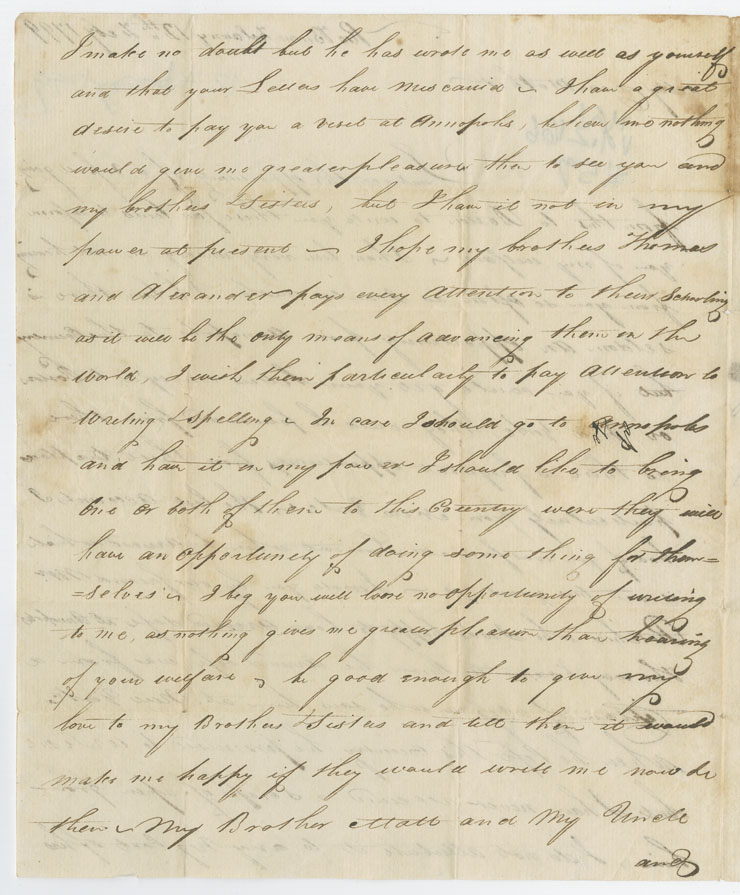 I make no doubt but he has wrote me as well as yourself
and that your Letters have miscarried I have a great
desire to pay you a visit at Annopolis, believe me nothing
would give me greater pleasure then to see you and
my brothers & Sisters, but I have it not in my
power at present — I hope my brothers Thomas
and Alexander pays every Attention to their Schooling
as it will be the only means of advancing them in the
World, I wish them particularly to pay Attention to
Writing & spelling In case I should go to Annopolis
and have it in my power I should like to bring
one or both of them to this Country were they will
have an opportunity of doing some thing for them=
=selves I beg you will loose no opportunity of writing
to me, as nothing gives me greater pleasure than hearing
of your welfare be good enough to give my
love to my Brothers & Sisters and tell them it would
make me happy if they would write me now &
then My Brother Matt and My Uncle
and